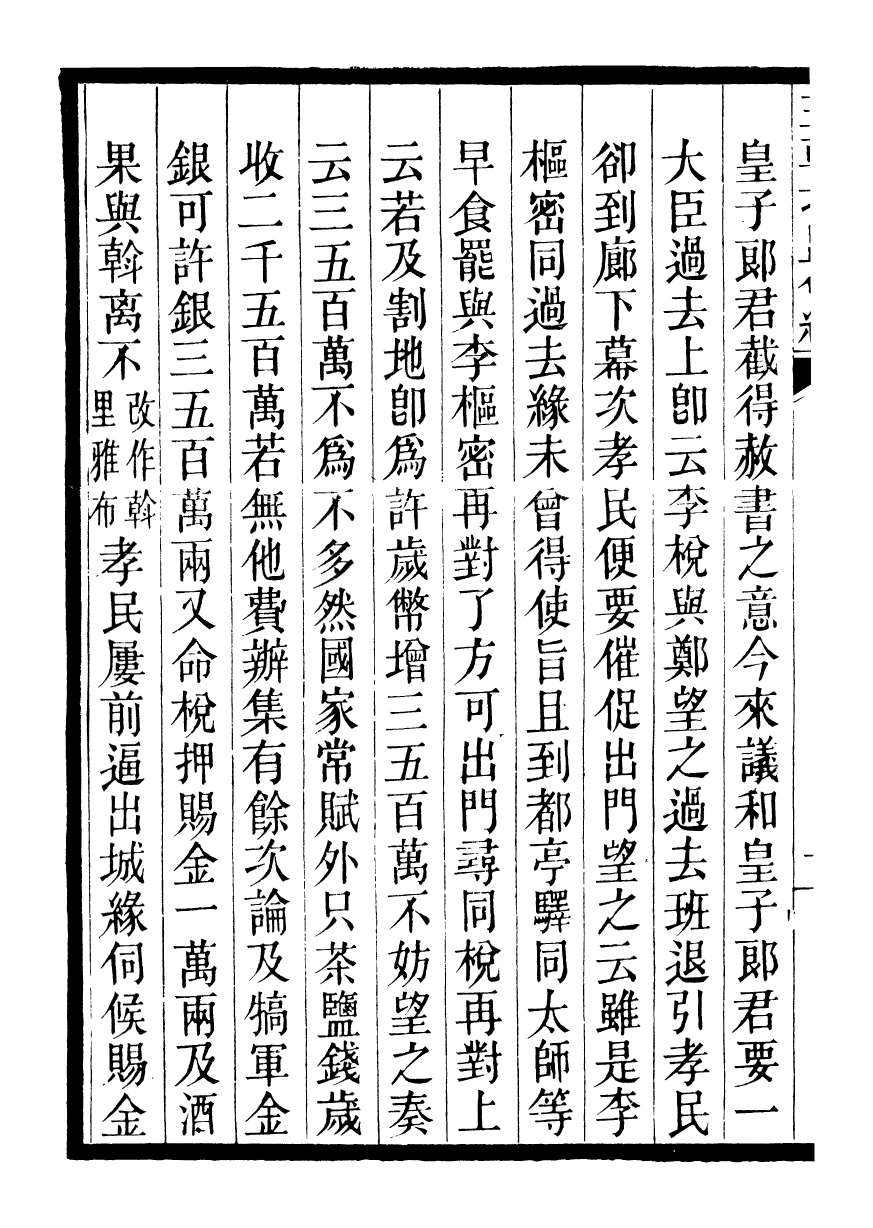 皇子郞君截得赦書之意今來議和皇子郞君要一
大臣過去上卽云李梲與鄭望之過去班退引孝民
卻到廊下幕次孝民便要催促出門望之云雖是李
樞密同過去緣未曾得使旨且到都亭驛同太師等
早食罷與李樞密再對了方可出門尋同梲再對上
云若及割地卽爲許歲幣增三五百萬不妨望之奏
云三五百萬不爲不多然國家常賦外只茶鹽錢歲
收二千五百萬若無他費辦集有餘次論及犒軍金
銀可許銀三五百萬兩又命梲押賜金一萬兩及酒
果與斡离不改作斡里雅布孝民屢前逼出城緣伺候賜金